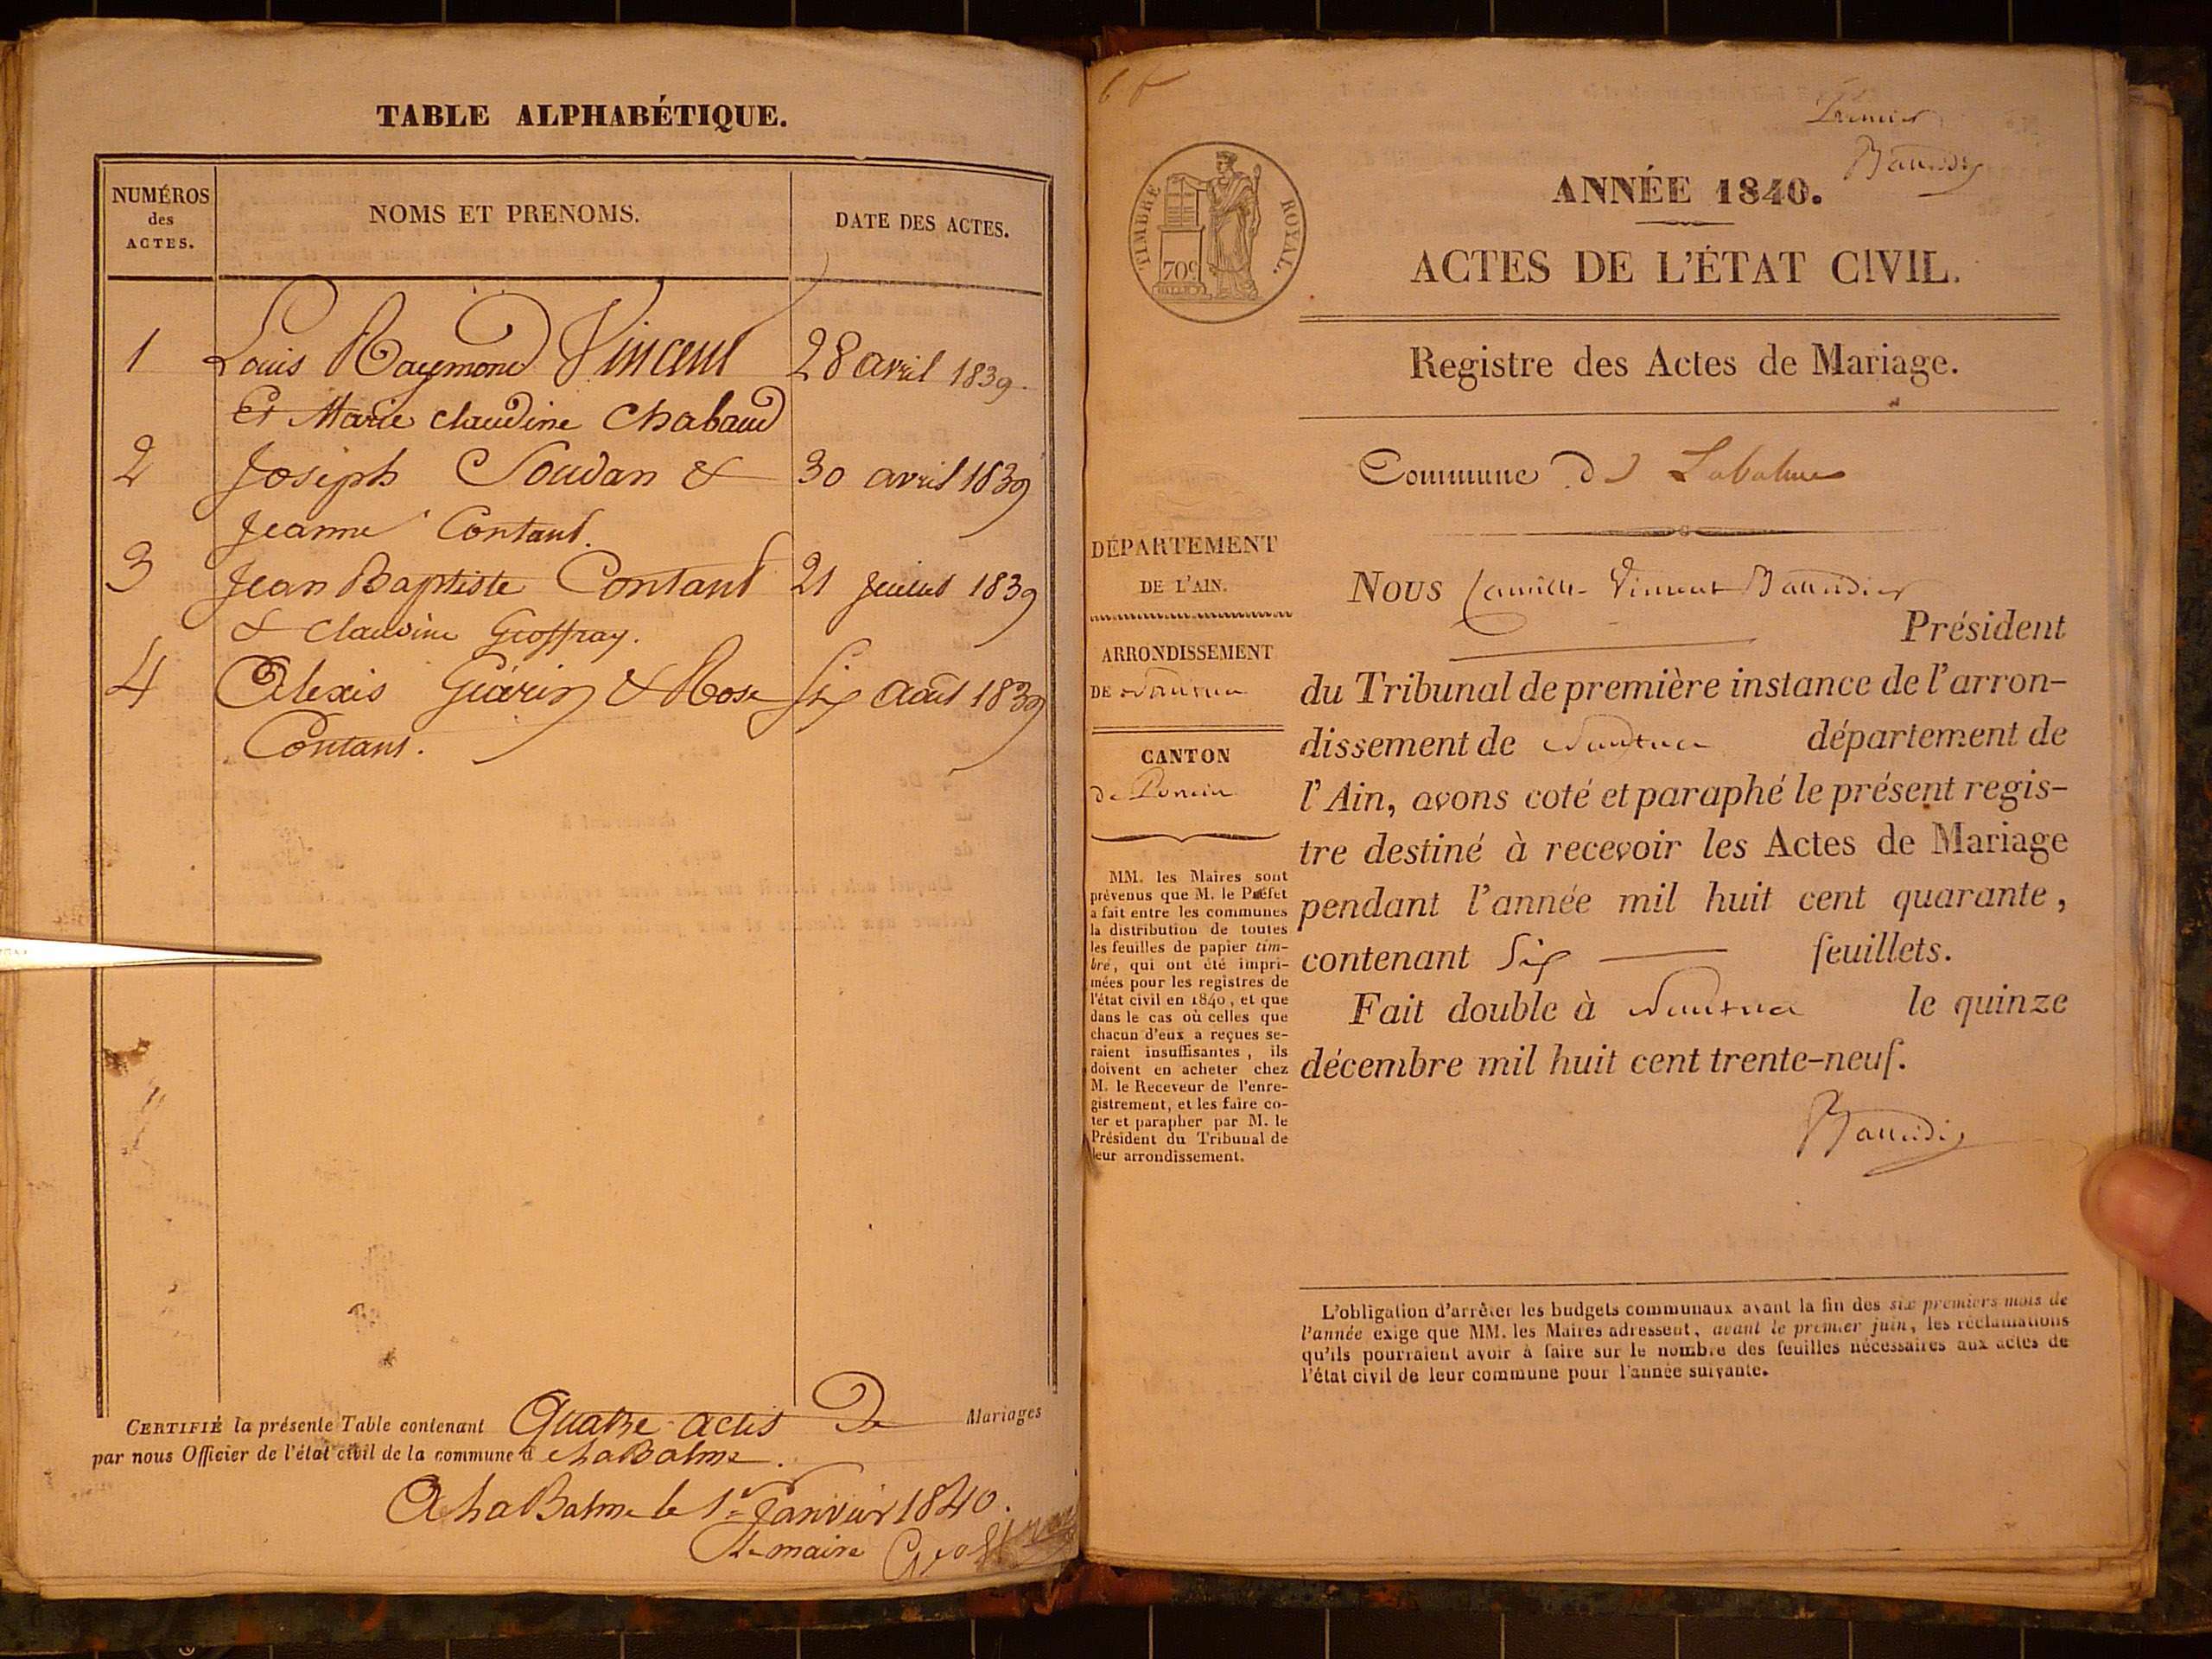 TABLE ALPHABÉTIQUE.
NUMÉROS
des
ACTES.
NOMS ET PRENOMS.
DATE DES ACTES.
1 Louis Raymond Vincent 28 avril 1839.
Et Marie Claudine Chabaud
2 Joseph Soudan & 30 avril 1839
Jeanne Contant.
3 Jean Baptiste Contant 21 1839
& Claudine Geoffray.
4 Alexis Guérin & Rose six août 1839
Contant.
CERTIFIÉ la présente Table contenant Quatre actes De Mariages
par nous Officier de l'état civil de la commune d LaBalme.
A LaBalme le 1er Janvier 1840.
Le maire
Premier
ANNÉE 1840.
TIMBRE ROYAL.
70c
ACTES DE L'ÉTAT CIVIL.
Registre des Actes de Mariage.
Commune de Labalme
DÉPARTEMENT
DE L'AIN.
ARRONDISSEMENT
DE Nantua
CANTON
de Poncin
MM. les Maires sont
prévenus que M. le Préfet
a fait entre les communes
la distribution de toutes
les feuilles de papier tim-
bré, qui ont été impri-
mées pour les registres de
l'état civil en 1840, et que
dans le cas où celles que
chacun d'eux a reçues se-
raient insuffisantes, ils
doivent en acheter chez
M. le Receveur de l'enre-
gistrement, et les faire co-
ter et parapher par M. le
Président du Tribunal de
leur arrondissement.
Nous Camille Vincent Baudier
Président
du Tribunal de première instance de l'arron-
dissement de Nantua département de
l'Ain, avons coté et paraphé le présent regis-
tre destiné à recevoir les Actes de Mariage
pendant l'année mil huit cent quarante,
contenant Six feuillets.
Fait double à Nantua le quinze
décembre mil huit cent trente-neuf.
L'obligation d'arrêter les budgets communaux avant la fin des six premiers mois de
l'année exige que MM. les Maires adressent, avant le premier juin, les réclamations
qu'ils pourraient avoir à faire sur le nombre des feuilles nécessaires aux actes de
l'état civil de leur commune pour l'année suivante.